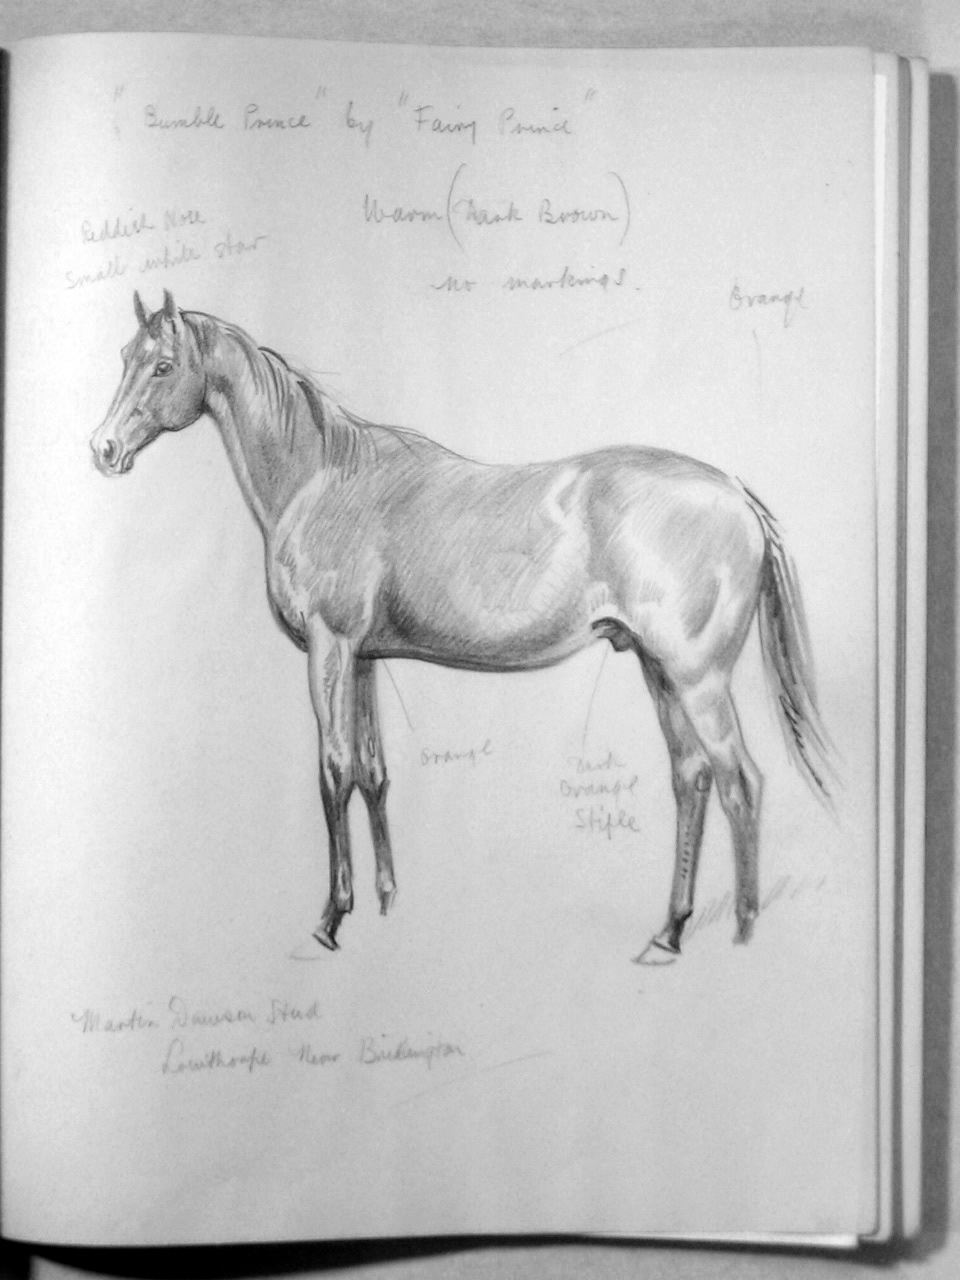 "Bumble Prince" by "Fairy Prince"
Warm (Dark Brown)
Reddish Nose
Small white star
no markings.
Orange
Orange
Dark
Orange
Stifle
Martin Dawson Stud
Lowthorpe Near Bridlington